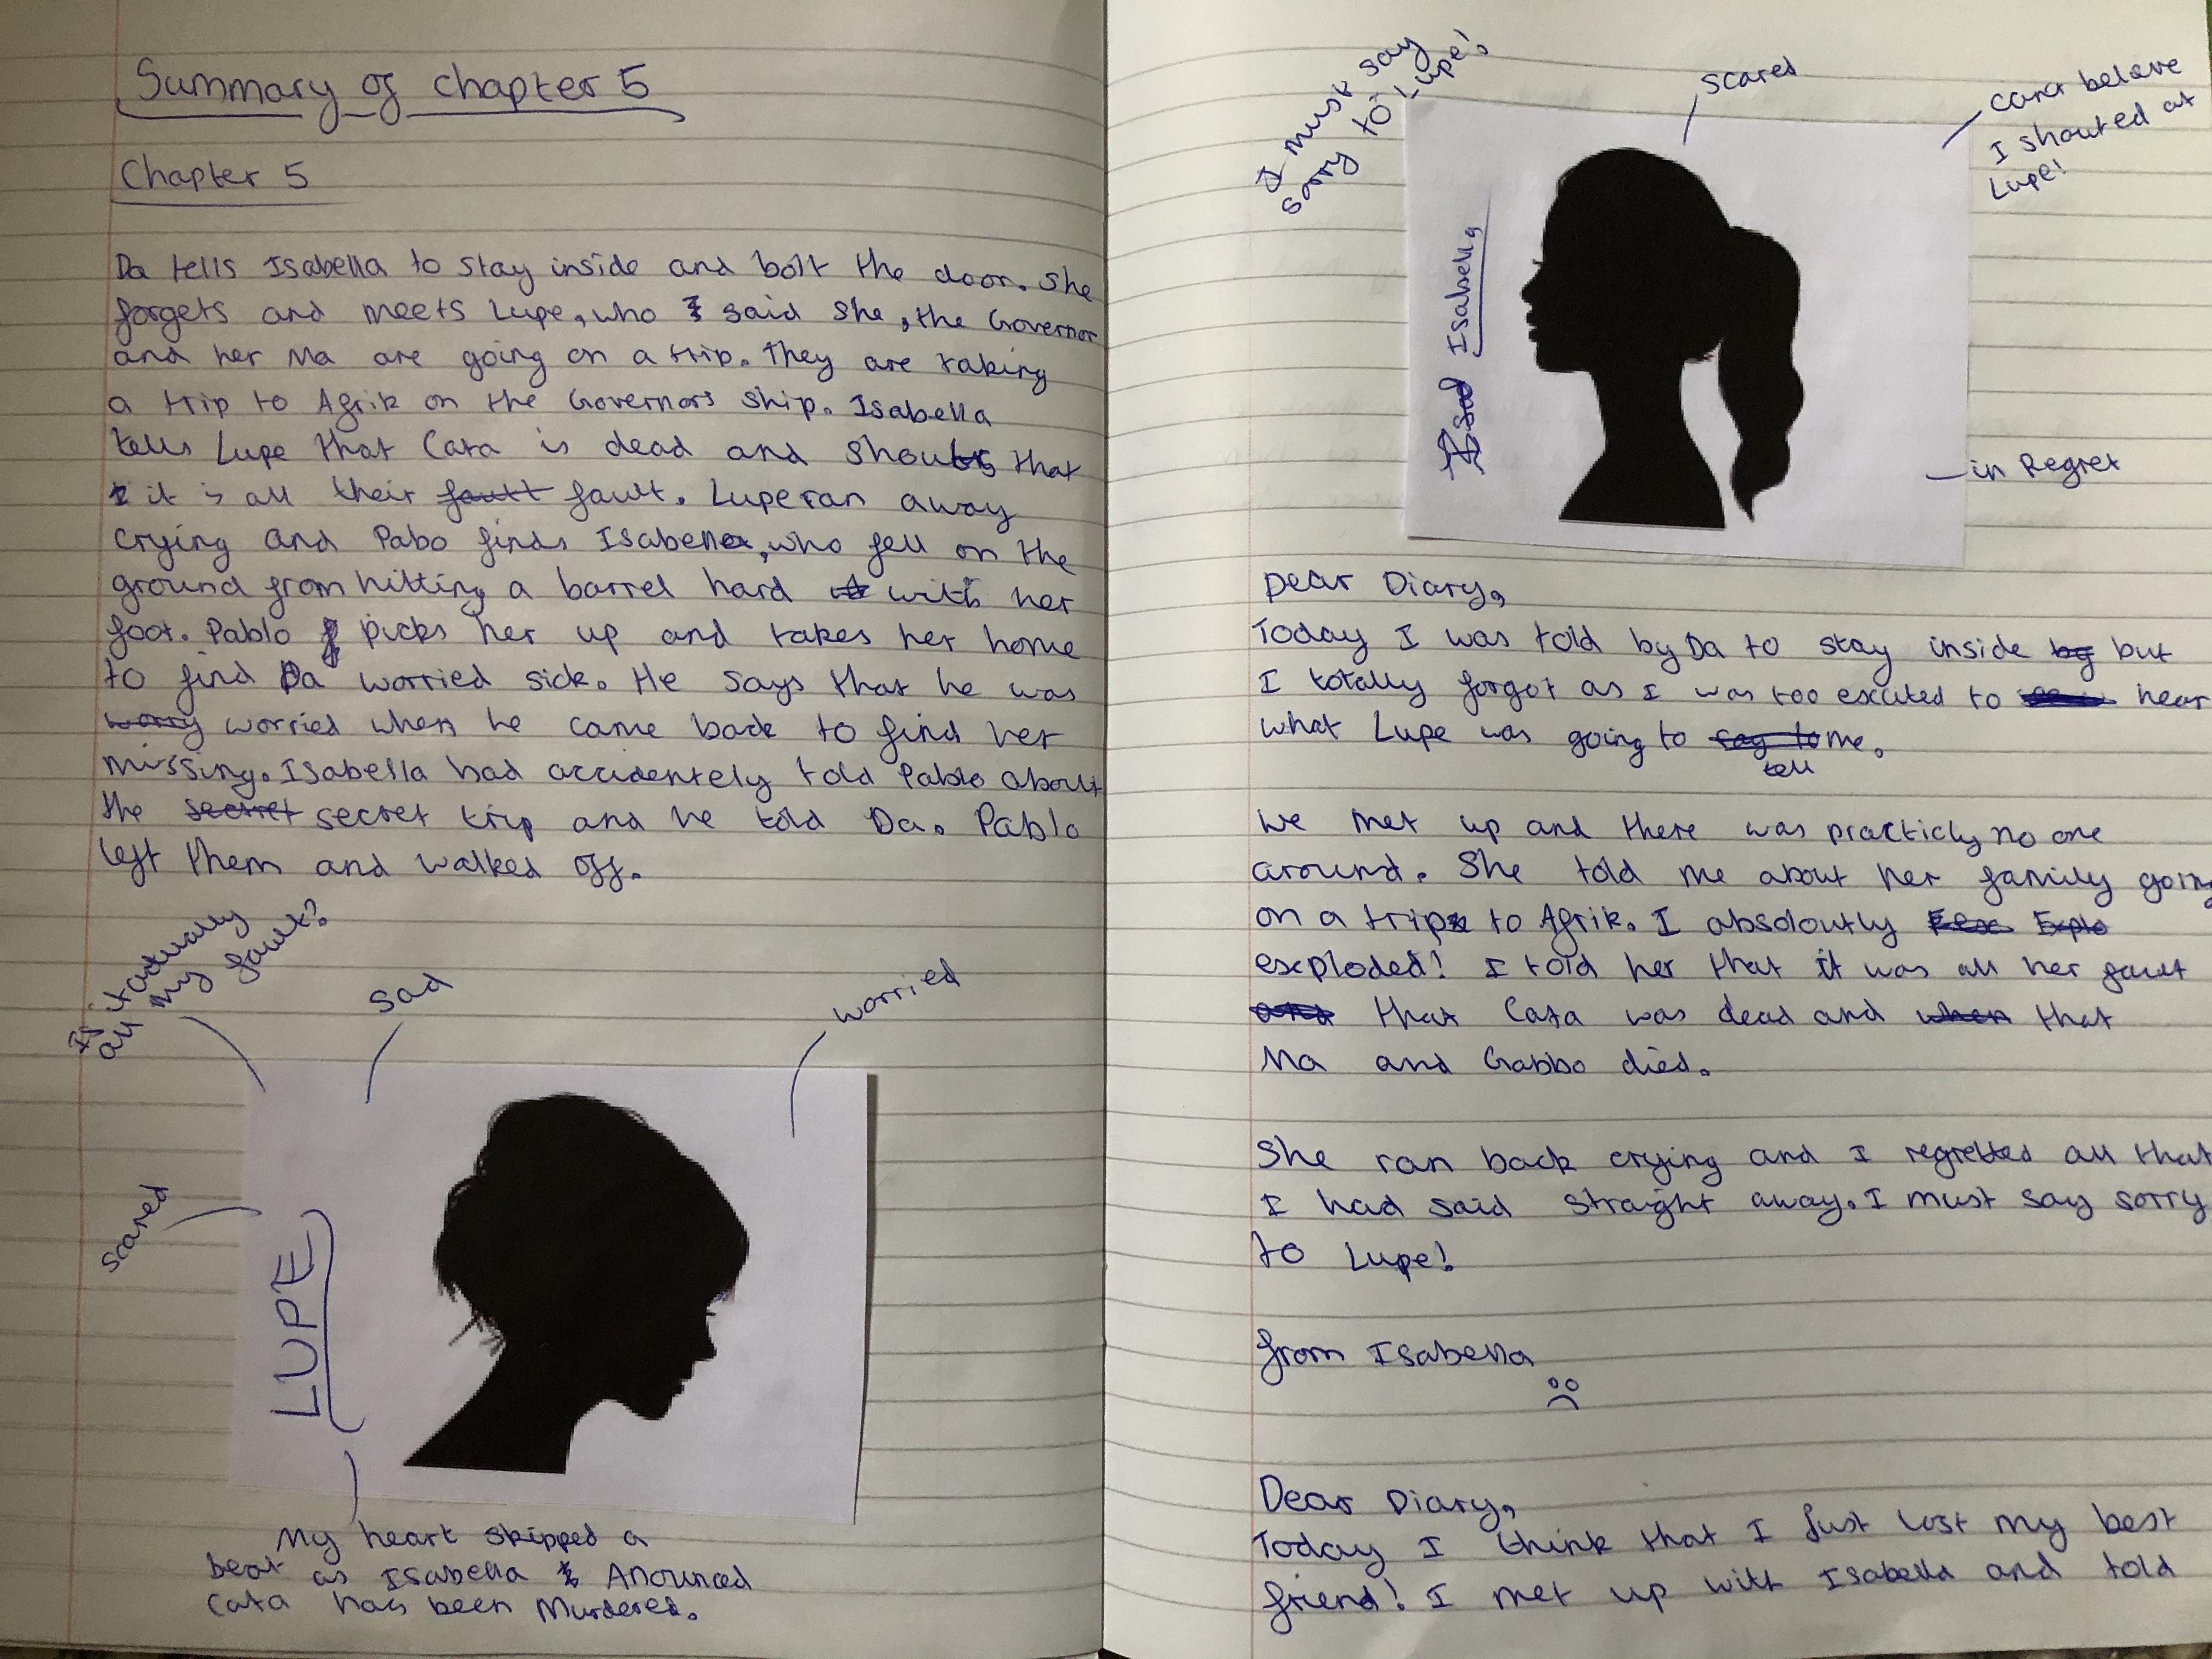 Summary of chapter 5
Chapter 5
Da tells Isabella to stay inside and bolt the door. She
forgets and meets Lupe, who said she, the Governor
and her Ma are going on a trip. They are taking
a trip to Afrik on the Governors ship. Isabella
tells Lupe that Cata is dead and shouts that
it is all their fault fault. Lupe ran away
crying and Pabo finds Isabella, who fell on the
ground from hitting a barrel hard with her
foot. Pablo picks her up and takes her home
to find Da worried sick. He says that he was
worry worried when he came back to find her
missing. Isabella had accidentely told Pablo about
the secret secret trip and he told Da. Pablo
left them and walked off.
Is it actually
all my fault?
Sad
worried
scared
LUPE
My heart skipped a
beat as Isabella Anounced
Cata has been Murdered.
I must say
sorry to Lupe!
scared
Cant beleve
I shouted at
Lupe!
Isabella
in Regret
Dear Diary,
Today I was told by Da to stay inside but
I totally forgot as I was too excited to hear
what Lupe was going to say to me.
tell
We met up and there was practicly no one
around. She told me about her family going
on a trip to Afrik. I absoloutly Explo
exploded! I told her that it was all her fault
and that Cata was dead and when that
Ma and Gabbo died.
She ran back crying and I regretted all that
I had said straight away. I must say sorry
to Lupe!
from Isabella
Dear Diary,
Today I think that I just lost my best
friend! I met up with Isabella and told